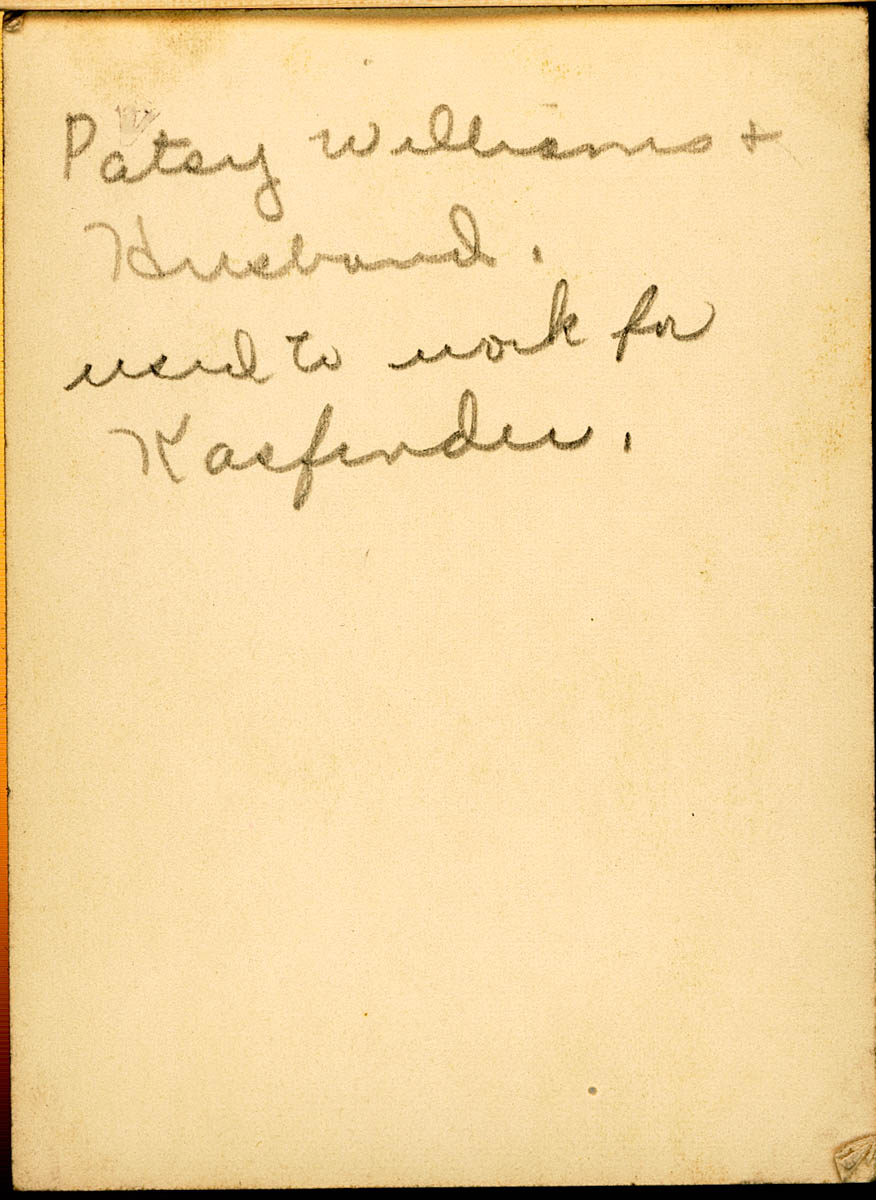 Patsy Williams +
Husband.
used to work for